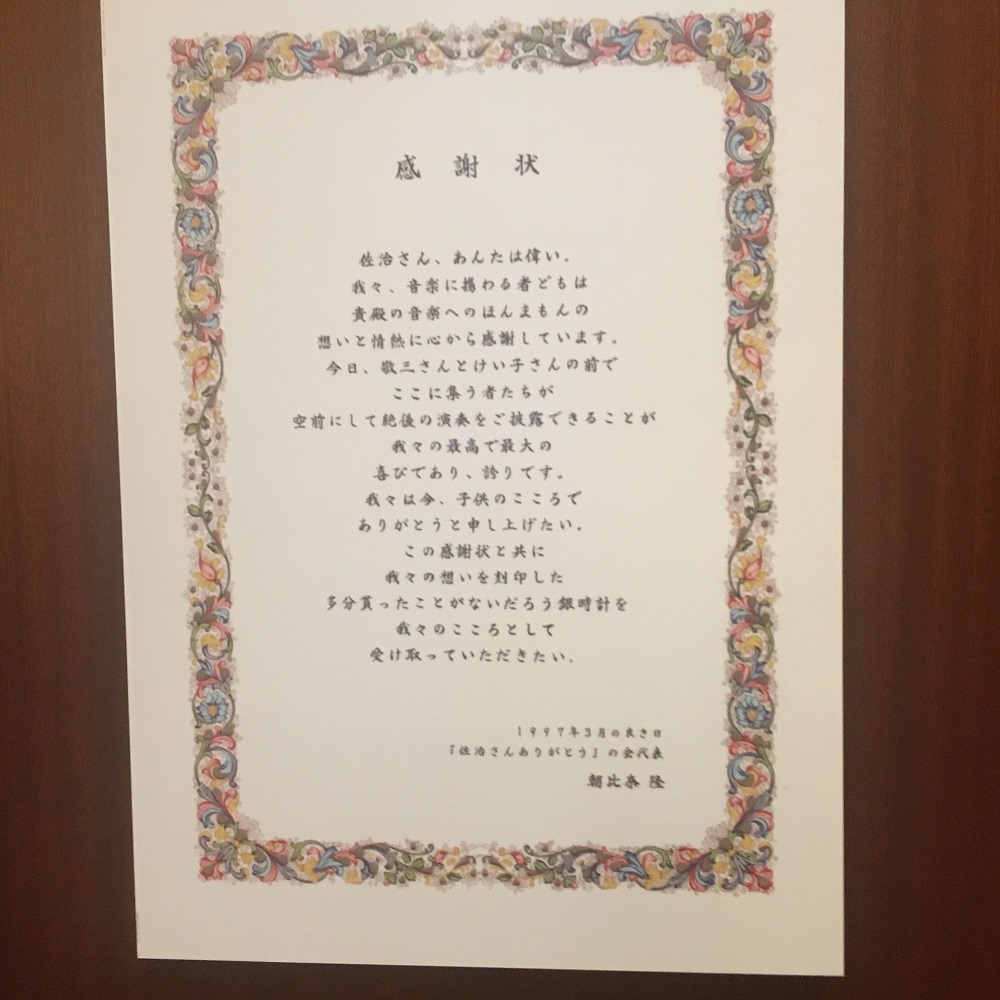 感謝状
佐治さん、あんたは偉い。
我々、音楽に携わる者どもは
貴殿の音楽へのほんまもんの
想いと情熱に心から感謝しています。
今日、敬三さんとけい子さんの前で
ここに集う者たちが
空前にして絶後の演奏をご披露できることが
我々の最高で最大の
喜びであり、誇りです。
我々は今、子供のこころで
ありがとうと申し上げたい。
この感謝状と共に
我々の想いを刻印した
多分貰ったことがないだろう銀時計を
我々のこころとして
受け取っていただきたい。
1997年3月の良き日
『佐治さんありがとう』の会代表
朝比奈 隆